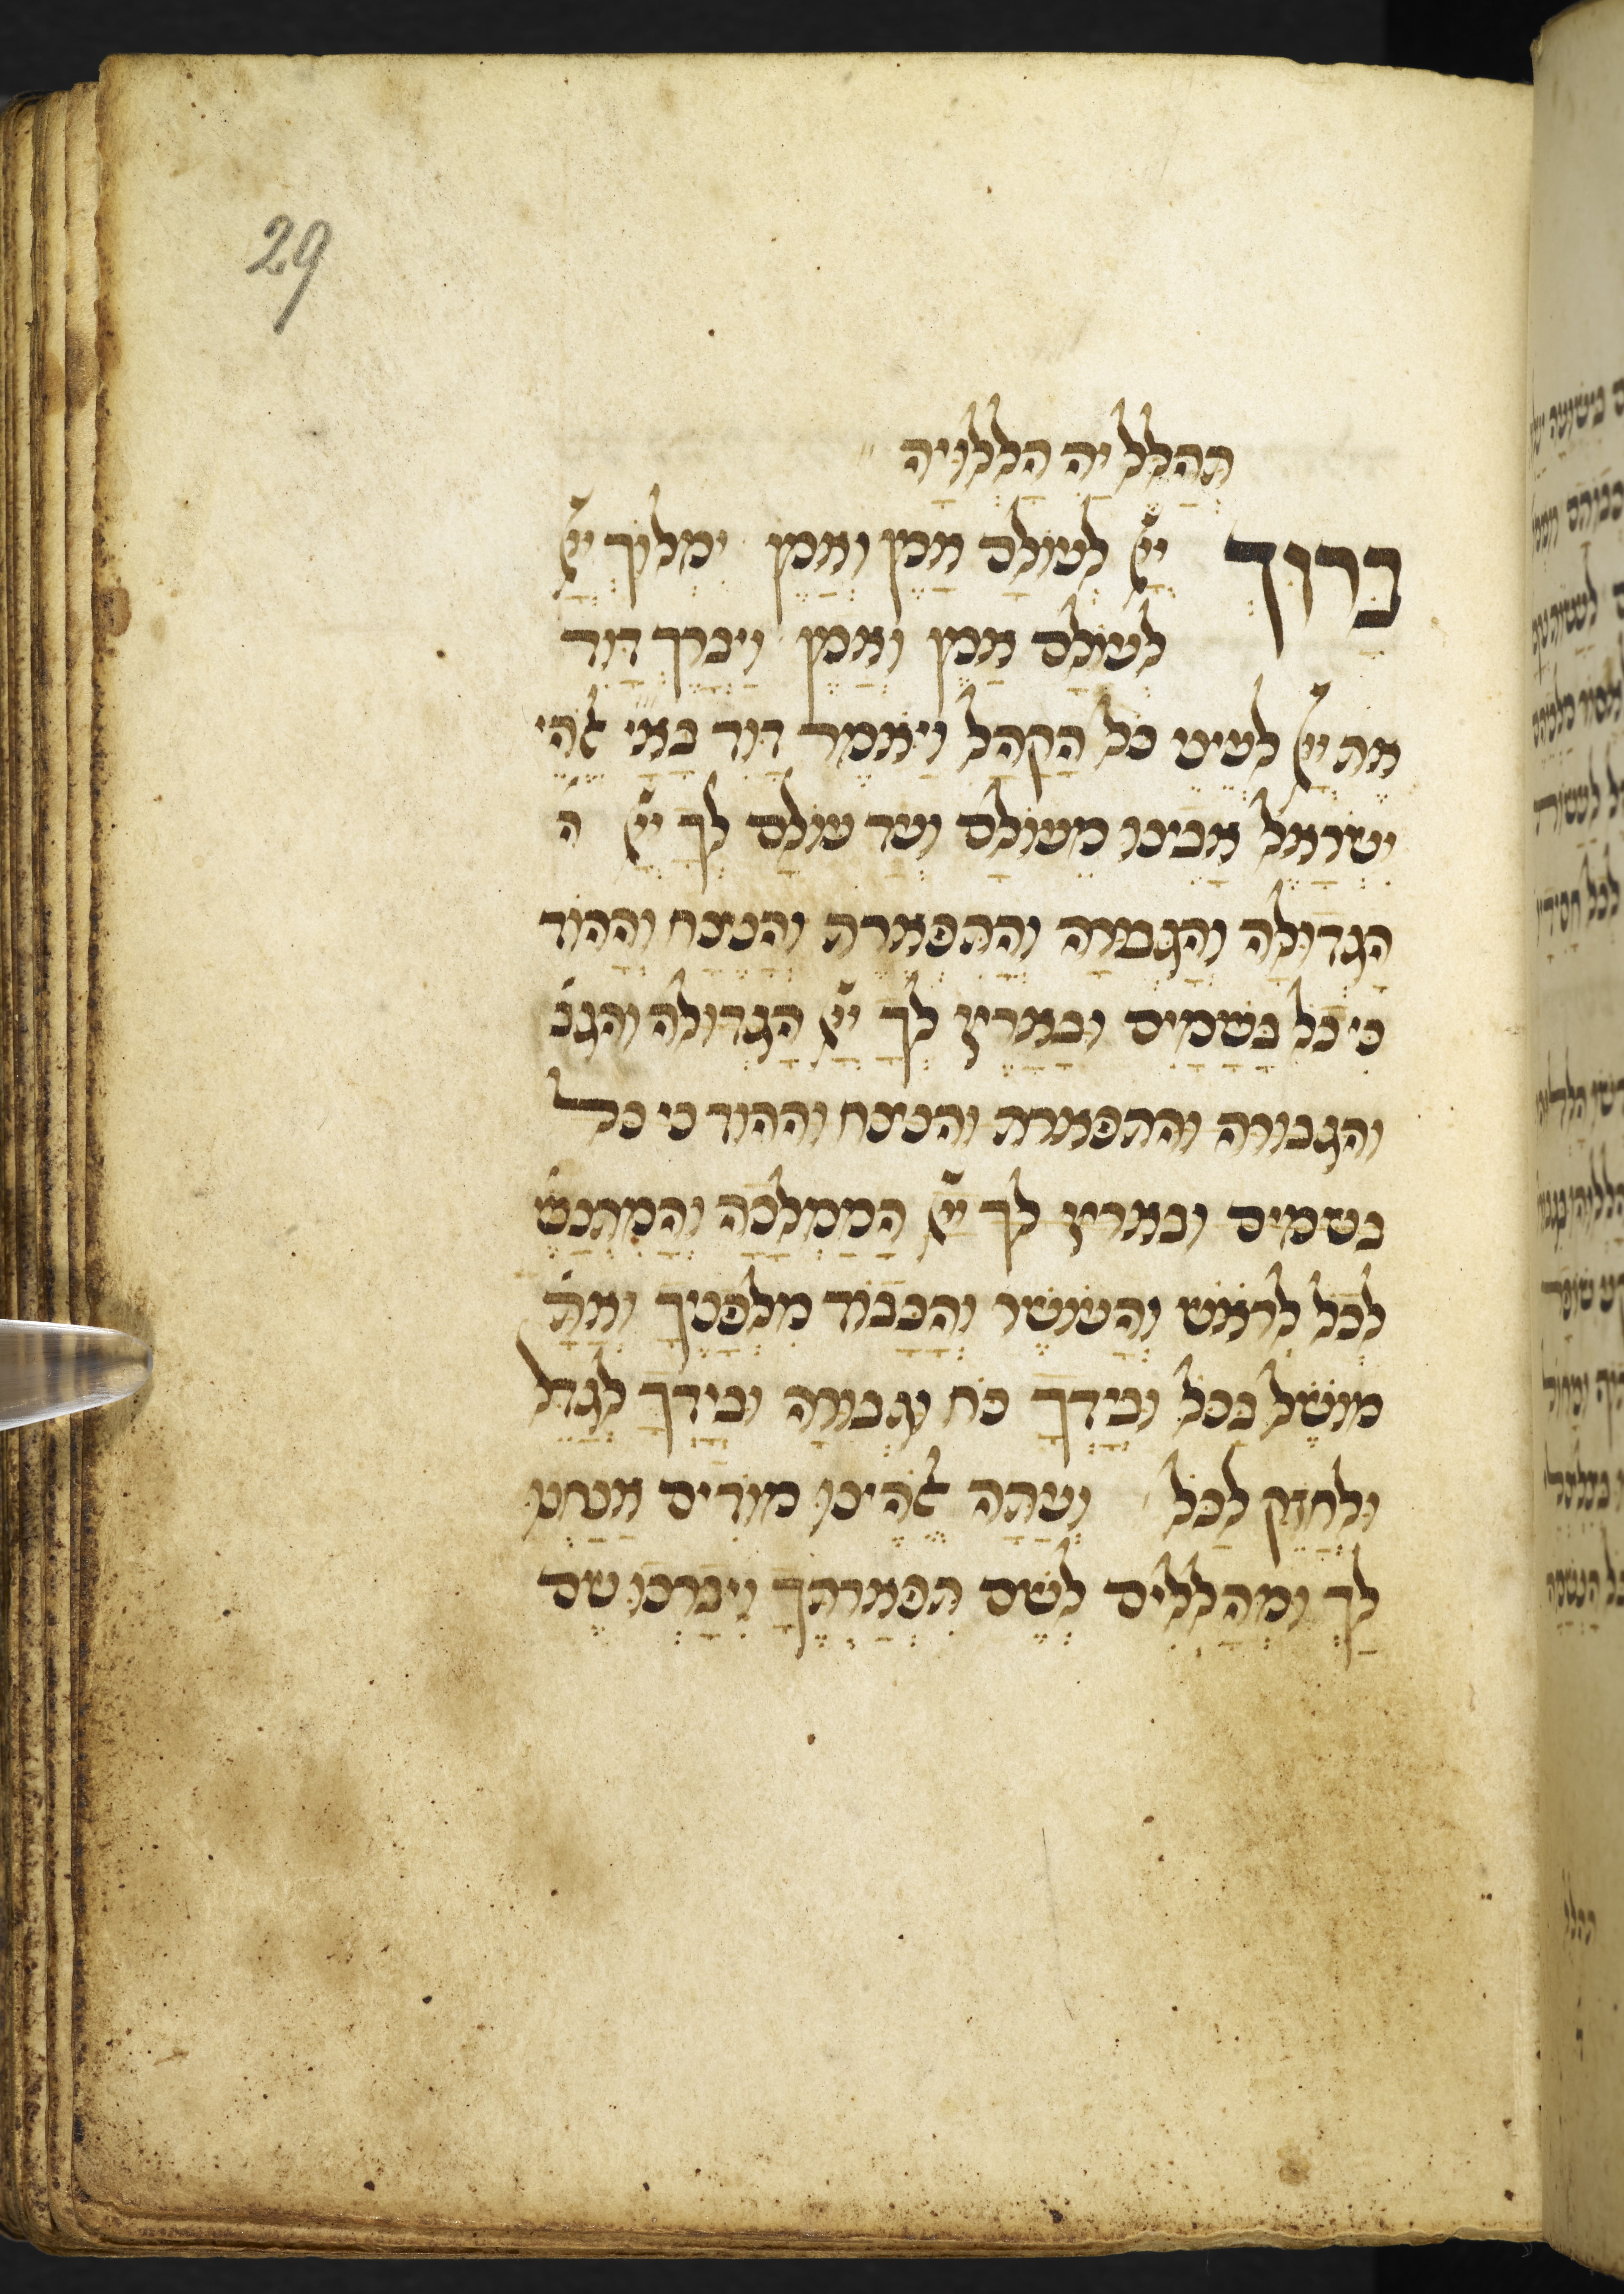 29
תְהַלֵּל יָהּ הַלְלוּיָהּ
בָּרוּךְ יְיָ לְעוֹלָם אָמֵן וְאָמֵן יִמְלוֹךְ יְיָ
לְעוֹלָם אָמֵן וְאָמֵן וַיְבָרֶךְ דָּוִד
אֶת יְיָ לְעֵינֵי כָּל הַקָּהָל וַיֹּאמֶר דָּוִד בָּא״י אֱלֹהֵי
יִשְׂרָאֵל אָבִינוּ מֵעוֹלָם וְעַד עוֹלָם לְךָ יְיָ ה
הַגְּדוּלָּה וְהַגְּבוּרָה וְהַתִּפְאֶרֶת וְהַנֵּצַח וְהַהוֹד
כִּי כָל בַּשָּׁמַיִם וּבָאָרֶץ לְךָ יְיָ הַגְּדוּלָה וְהַגְּב
והגבורה והתפארת והנצח וההוד כי כל
בשמים ובארץ לך יְיָ הַמַּמְלָכָה וְהַמִּתְנַשֵּׂ
לְכָל לְרֹאשׁ וְהָעוֹשֶׁר וְהַכָּבוֹד מִלְּפָנֶיךָ וְאַתָּ
מוֹשֵׁל בַּכֹּל וּבְיָדְךָ כֹּחַ וּגְבוּרָה וּבְיָדְךָ לְגַדֵּל
וּלְחַזֵּק לַכֹּל וְעַתָּה אֱלֹהֵינוּ מוֹדִים אֲנַחְנוּ
לָךְ וּמְהַלְלִים לְשֵׁם תִּפְאַרְתֶּךָ וִיבָרְכוּ שֵׁם